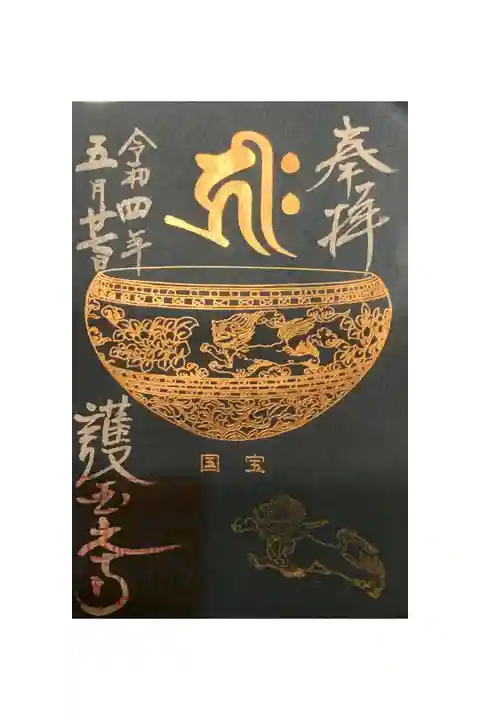 奉拝
ह्रीः
令和四年
五月廿日
国宝
護国之寺